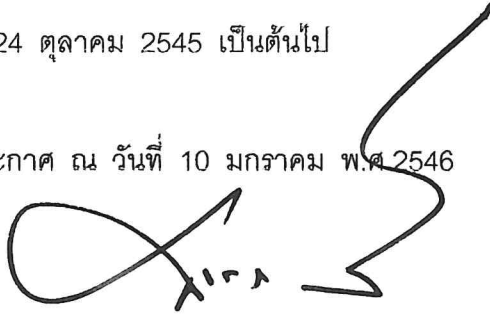 24 ตุลาคม 2545 เป็นต้นไป
ะกาศ ณ วันที่ 10 มกราคม พ.ศ.2546